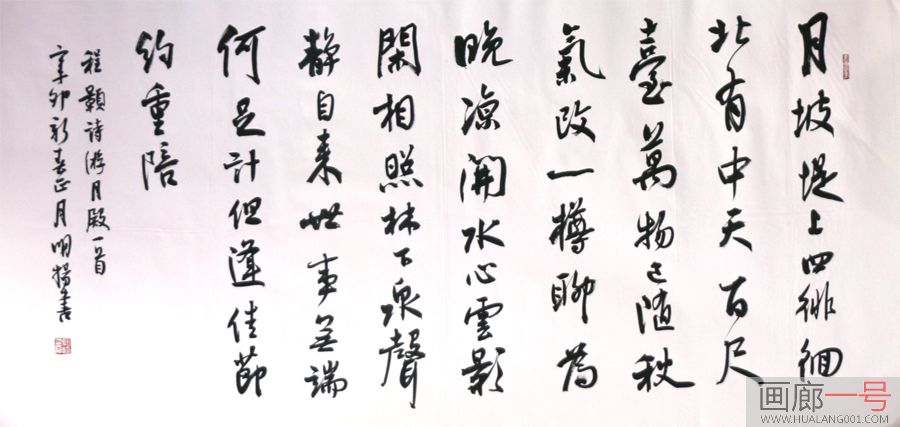 月坡堤上四徘徊
北有中天百尺
臺萬物已隨秋
氣改一樽聊為
晚涼開水心雲影
閑相照林下泉聲
靜自來世事無端
何足計但逢佳節
約重陪
程顥詩游月殿一首
辛卯新春正月明楊書
画廊一号
WWW.HUALANG001.COM